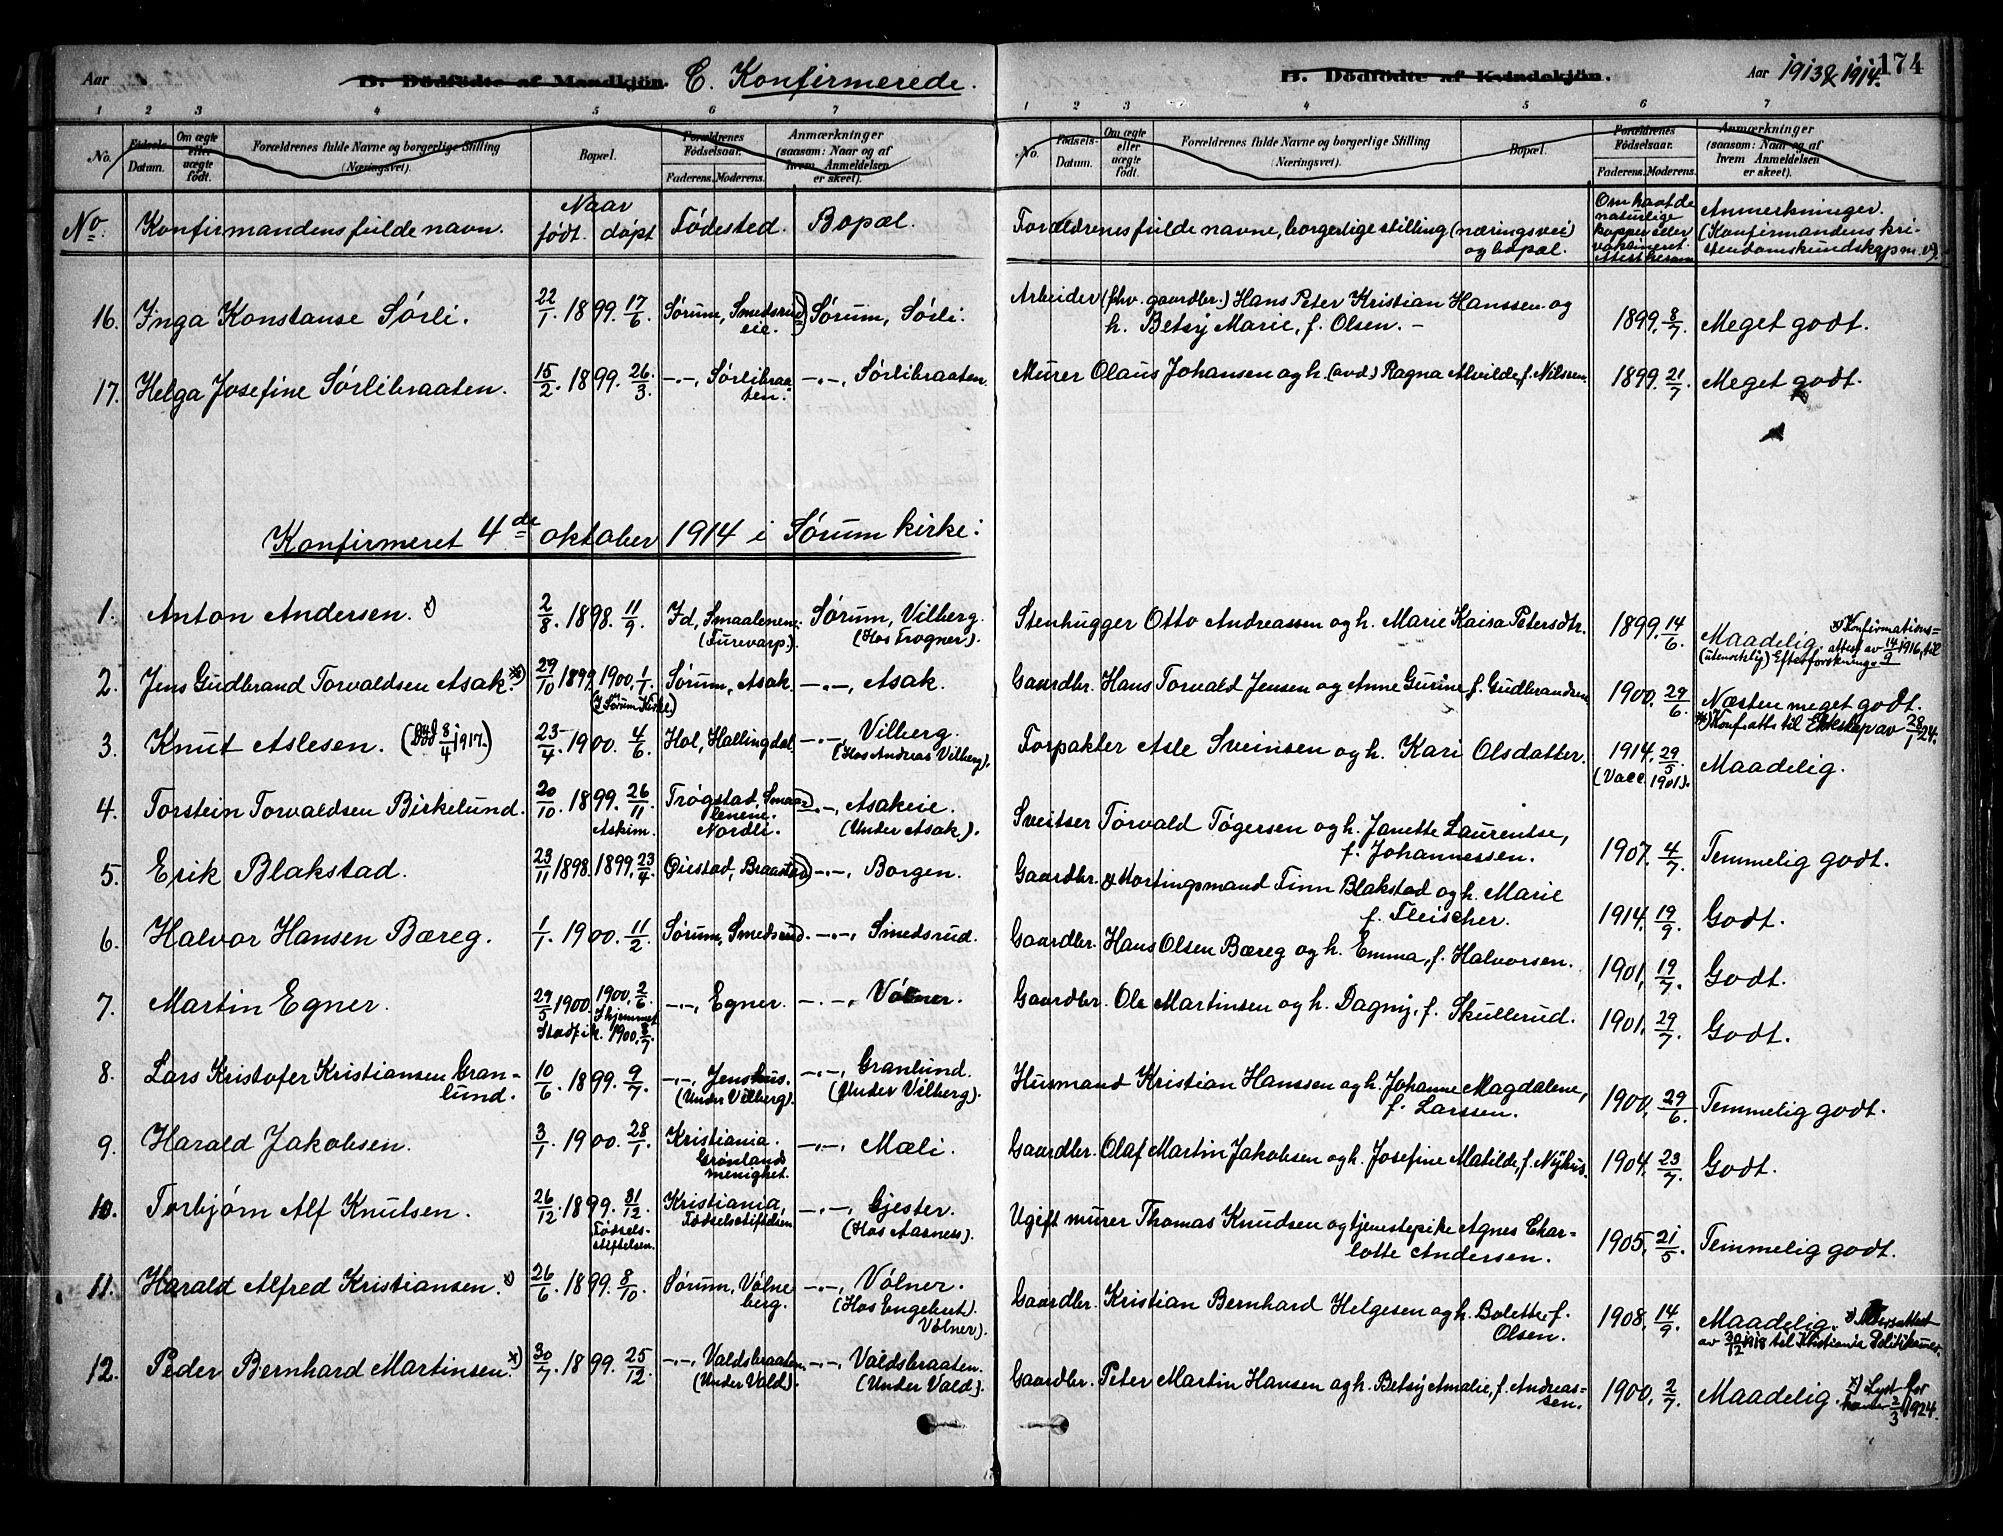 Aar B. Dödfödte af Mandkjön. C. Konfirmerede.
1 2 3 4 5 6 7
No. Fødsels-Datum. Om ægte eller uægte født. Forældrenes fulde Navne og borgerlige Stilling (Næringsvei). Bopæl. Forældrenes Fødselsaar. Faderens. Moderens. Anmærkninger (saasom: Naar og af hvem Anmeldelsen er skeet).
No. Konfirmandens fulde navn. Naar født. døpt Fødested. Bopæl.
16. Inga Konstanse Sørli. 22/1. 1899. 17/6 Sørum, Smedsrud eie. Sørum, Sørli.
17. Helga Josefine Sørlibraaten. 15/2. 1899. 26/3. -"-, Sørlibraaten. -"-, Sørlibraaten.
Konfirmeret 4de oktober 1914 i Sørum kirke:
1. Anton Andersen. x) 2/8. 1898. 11/9. Id, Smaalenene. (Furevarp). Sørum, Vilberg. (Hos Trogner).
2. Jens Gudbrand Torvaldsen Asak. x) 29/10 1899. 1900. 1/1. (I Sørum Kirke) Sørum, Asak. -"-, Asak.
3. Knut Aslesen. (Død 8/4 1917.) 23/4. 1900. 4/6. Hol, Hallingdal -"-, Vilberg. (Hos Andreas Vilberg).
4. Torstein Torvaldsen Birkelund. 20/10. 1899. 26/11 Askim. Trøgstad, Smaalenene. Nordli. -"-, Asakeie. (Under Asak).
5. Erik Blakstad. 23/11 1898. 1899. 23/4. Øiestad, Braastad -"-, Borgen.
6. Halvor Hansen Bæreg. 1/1. 1900. 11/2. Sørum, Smedsrud. -"-, Smedsrud.
7. Martin Egner. 29/5 1900. 1900. 2/6. I hjemmet Stadf. i k. 1900. 8/7 -"-, Egner. -"-, Vølner.
8. Lars Kristofer Kristiansen Granlund. 10/6. 1899. 9/7. -"-, Jenshus. (Under Vilberg). -"-, Granlund. (Under Vilberg).
9. Harald Jakobsen. 3/1. 1900. 28/1. Kristiania. Grønlands menighet. -"-, Mæli.
10. Torbjørn Alf Knutsen. 26/12. 1899. 31/12. Fødselsstiftelsen. Kristiania, Fødselsstiftelsen -"-, Gjester. (Hos Aasness).
11. Harald Alfred Kristiansen. x) 26/6. 1899. 8/10 Sørum, Vølneberg. -"-, Vølner. (Hos Engebret Vølner).
12. Peder Bernhard Martinsen. x) 30/7. 1899. 25/12 -"-, Valdsbraaten. (Under Vald). -"-, Valdsbraaten. (Under Vald).
B. Dödfödte af Kvindekjön. Aar 1913 & 1914. 174
1 2 3 4 5 6 7
No. Fødsels-Datum. Om ægte eller uægte født. Forældrenes fulde Navne og borgerlige Stilling (Næringsvei). Bopæl. Forældrenes Fødselsaar. Faderens. Moderens. Anmærkninger (saasom: Naar og af hvem Anmeldelsen er skeet).
Forældrenes fulde navne, borgerlige stilling (næringsvei) og bopæl. Om havt de naturlige kopper eller vaksineret. Attest herom Anmerkninger. (Konfirmandens kristendomskundskap m.v).
Arbeider (fhv. gaardbr.) Hans Peter Kristian Hanssen og h. Betsy Marie, f. Olsen. - 1899. 8/7. Meget godt.
Murer Olaus Johansen og h. (avd.) Ragna Alvilde, f. Nilsen. 1899. 21/7 Meget godt.
Stenhugger Otto Andreassen og h. Marie Kaisa Petersdtr. 1899. 14/6. Maadelig. x) Konfirmations=attest av 14/9 1916, til (utenrikslig) Efterforsknings=
Gaardbr. Hans Torvald Jensen og Anne Gurine, f. Gudbrandsen 1900. 29/6. Næsten meget godt. x) Konf. atts til Ekteskap av 28/1 24.
Forpakter Asle Sveinsen og h. Kari Olsdatter. 1914. 29/5 (Vacc. 1901). Maadelig.
Sveitser Torvald Tøgersen og h. Janette Laurentse, f. Johannessen. 1907. 4/7. Temmelig godt.
Gaardbr. & stortingsmand Finn Blakstad og h. Marie f. Fleischer. 1914. 19/9. Godt.
Gaardbr. Hans Olsen Bæreg og h. Emma, f. Halvorsen. 1901. 19/7. Godt.
Gaardbr. Ole Martinsen og h. Dagny, f. Skullerud. 1901. 29/7. Godt.
Husmand Kristian Hanssen og h. Johanne Magdalene, f. Larssen. 1900. 29/6. Temmelig godt.
Gaardbr. Olaf Martin Jakobsen og h. Josefine Matilde, f. Nyhus. 1904. 23/7. Godt.
Ugift murer Thomas Knudsen og tjenestepike Agnes Charlotte Andersen. 1905. 21/5. Temmelig godt.
Gaardbr. Kristian Bernhard Helgesen og h. Bolette, f. Olsen. 1908. 14/9. Maadelig. av 30/12 1918 til Kristiania Politikamer.
Gaardbr. Peter Martin Hansen og h. Betsy Amalie, f. Andreassen. 1900. 2/7. Maadelig. x) Lyst for 2/3 1924.